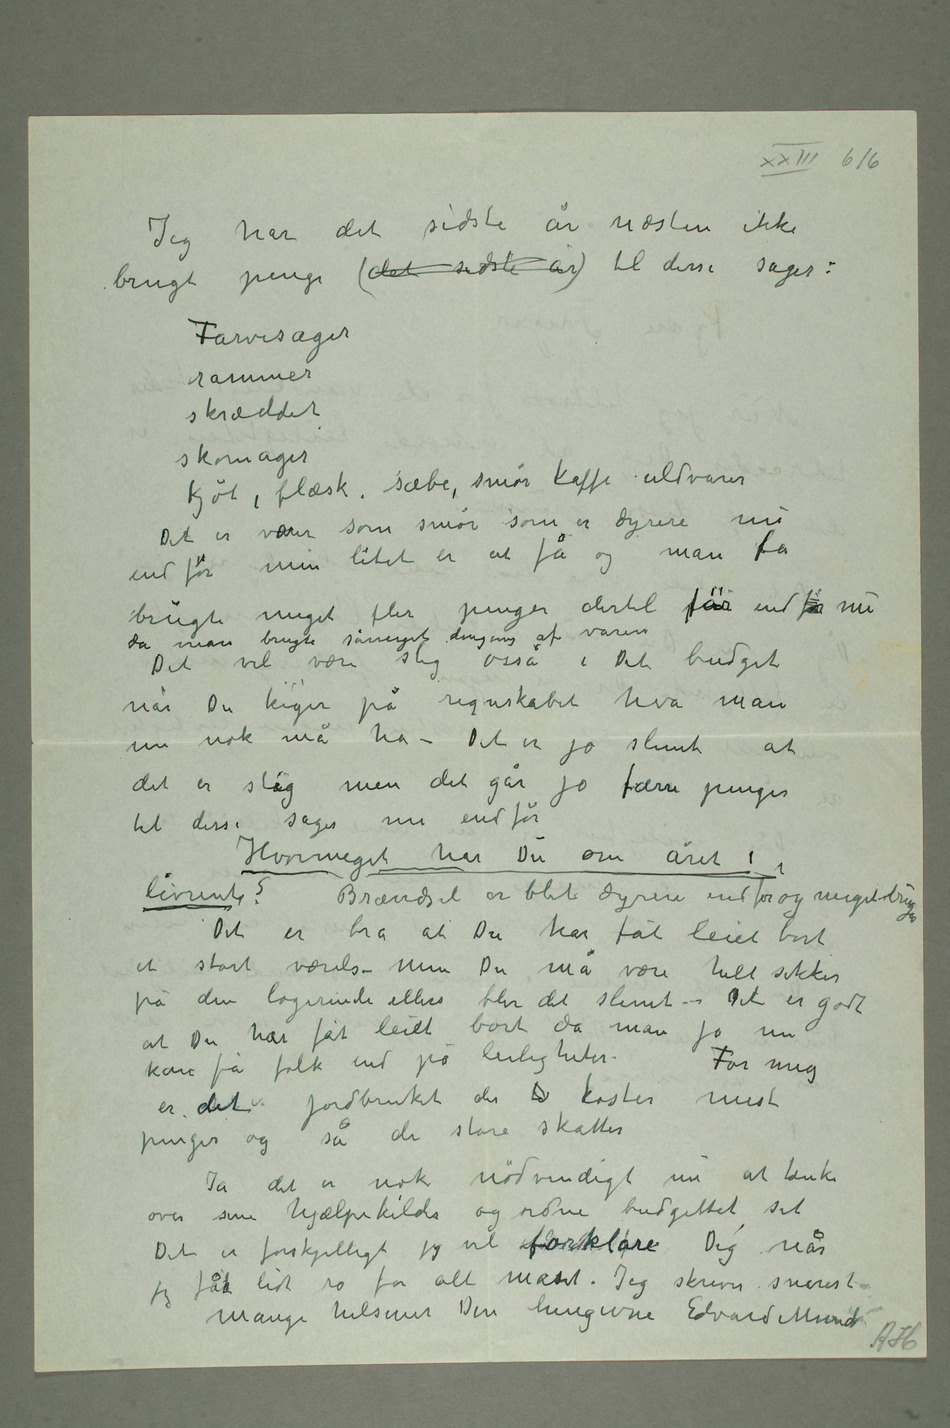 XXIII 616
Jeg har det sidste år næsten ikke
brugt penge (det sidste år) til disse sager:
Farvesager
rammer
skrædder
skomager
Kjøt, flæsk. sæbe, smør Kaffe uldvarer
Det er varer som smør som er dyrere nu
end før men litet er at få og man
brugte meget fler penger dertil før end nu
da man brugte såmeget af varen
Det vil være slig osså i Dit budget
når Du kiger på regnskabet hva man
nu nok må ha – Det er jo slemt at
det er slig men det går jo færre penger
til disse sager nu end før
Hvormeget har Du om året i
livrente? Brændsel er blit dyrere end før og meget
Det er bra at Du har fåt leiet bort
et stort værelse – men Du må være helt sikker
på den logerende ellers blir det slemt – Det er godt
at Du har fåt leiet bort da man jo nu
kan få folk ind på leiligheter. For meg
er det jordbruket der koster mest
penger og så de store skatter
Ja det er nok nødvendigt nu at tænke
over sine hjælpekilder og ordne budgettet sit
Det er forskjelligt jeg vil forklare Dig når
jeg får lidt ro for alt maset. Jeg skriver snarest –
Mange hilsener Din hengivne Edvard Munch